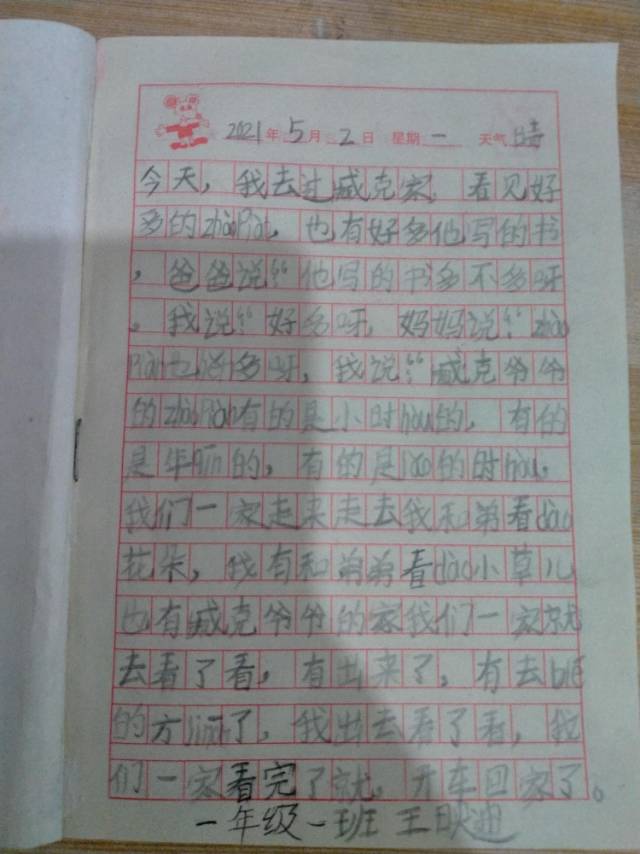 2021年5月2日 星期一 天气 晴
今天，我去过臧克家，看见好
多的zhàoPiàn，也有好多他写的书
，爸爸说“他写的书多不多呀
。我说“好多呀，妈妈说“zhào
Piàn也多呀，我说“臧克爷爷
的zhàoPiàn有的是小时hòu的，有的
是年qīn的，有的是lǎo的时hòu。
我们一家起来走去我和弟看dào
花朵，我有和弟弟看dào小草儿
也有臧克爷爷的家我们一家就
去看了看，有出来了，有去bié
的方了，我出去看了看，我
们一家看完了就，开车回家了。
一年级一班 王映迪